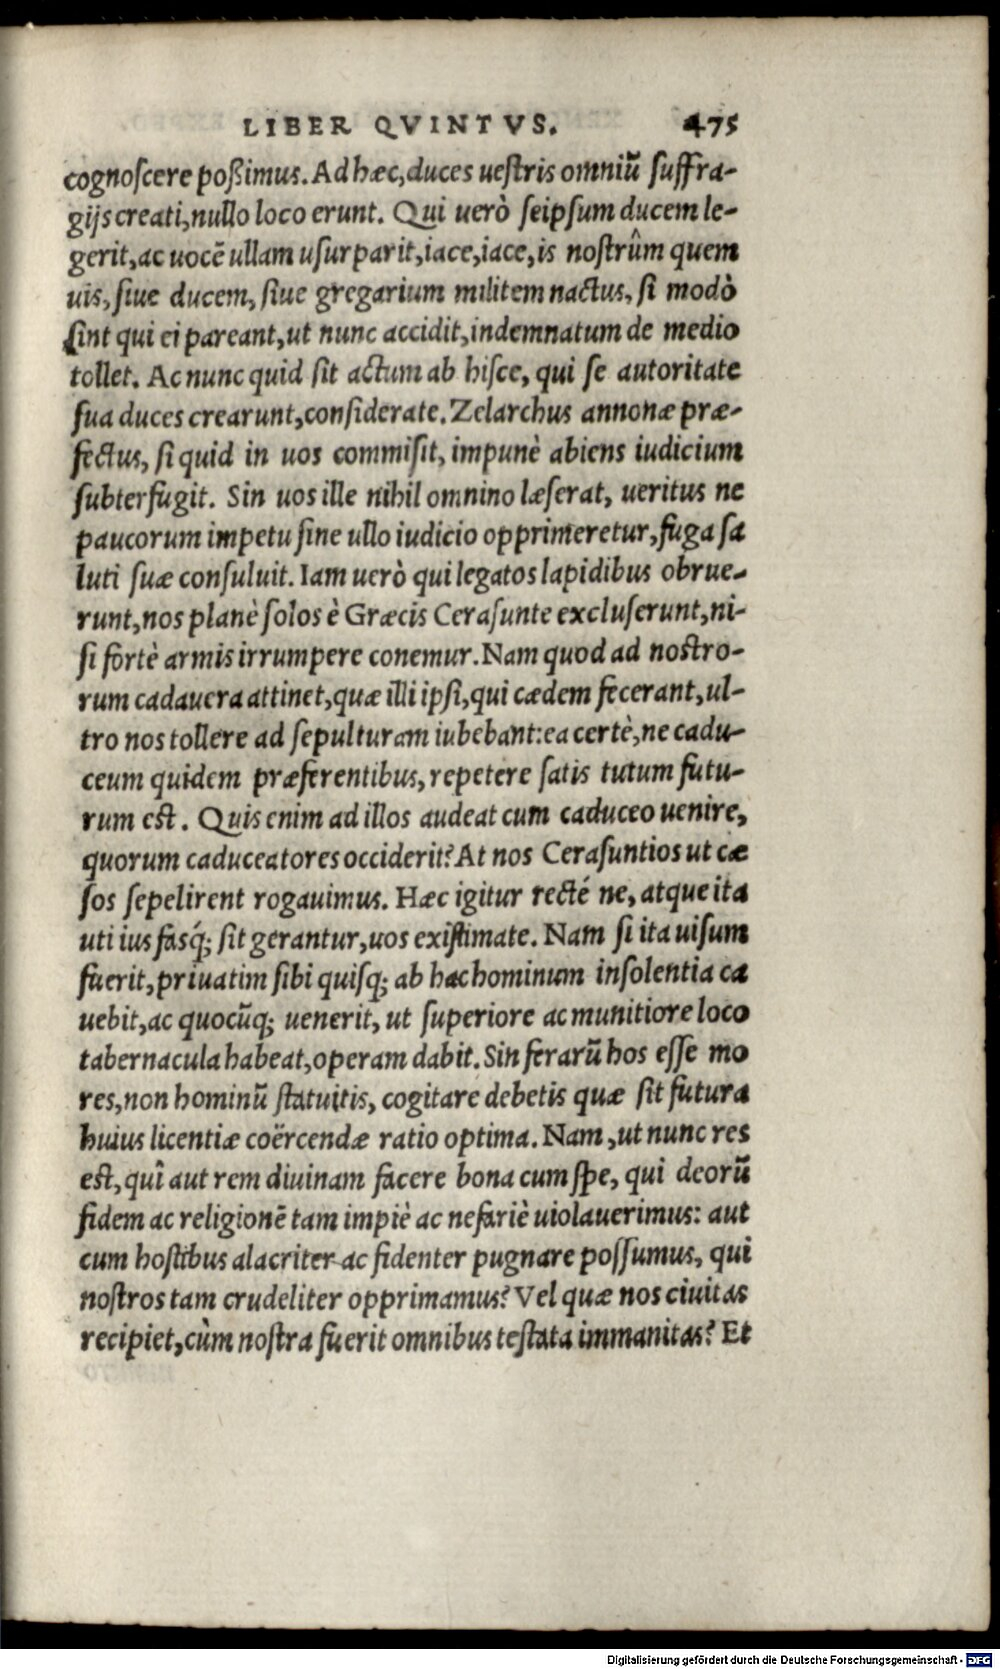 LIBER QVINTVS. 475
cognoscere poßimus. Ad hæc, duces uestris omniũ suffra-
gijs creati, nullo loco erunt. Qui uerò seipsum ducem le-
gerit, ac uocẽ ullam usurparit, iace, iace, is nostrûm quem
uis, siue ducem, siue gregarium militem nactus, si modò
sint qui ei pareant, ut nunc accidit, indemnatum de medio
tollet. Ac nunc quid sit actum ab hisce, qui se autoritate
sua duces crearunt, considerate. Zelarchus annonæ præ-
fectus, si quid in uos commisit, impunè abiens iudicium
subterfugit. Sin uos ille nihil omnino læserat, ueritus ne
paucorum impetu sine ullo iudicio opprimeretur, fuga sa
luti suæ consuluit. Iam uerò qui legatos lapidibus obrue-
runt, nos planè solos è Græcis Cerasunte excluserunt, ni-
si fortè armis irrumpere conemur. Nam quod ad nostro-
rum cadauera attinet, quæ illi ipsi, qui cædem fecerant, ul-
tro nos tollere ad sepulturam iubebant: ea certè, ne cadu-
ceum quidem præferentibus, repetere satis tutum futu-
rum est. Quis enim ad illos audeat cum caduceo uenire,
quorum caduceatores occiderit? At nos Cerasuntios ut cæ
sos sepelirent rogauimus. Hæc igitur recté ne, atque ita
uti ius fasq́; sit gerantur, uos existimate. Nam si ita uisum
fuerit, priuatim sibi quisq; ab hac hominum insolentia ca
uebit, ac quocũq; uenerit, ut superiore ac munitiore loco
tabernacula habeat, operam dabit. Sin ferarũ hos esse mo
res, non hominũ statuitis, cogitare debetis quæ sit futura
huius licentiæ coërcendæ ratio optima. Nam, ut nunc res
est, quî aut rem diuinam facere bona cum spe, qui deorũ
fidem ac religionẽ tam impiè ac nefariè uiolauerimus: aut
cum hostibus alacriter ac fidenter pugnare possumus, qui
nostros tam crudeliter opprimamus? Vel quæ nos ciuitas
recipiet, cùm nostra fuerit omnibus testata immanitas? Et
Digitalisierung gefördert durch die Deutsche Forschungsgemeinschaft - DFG